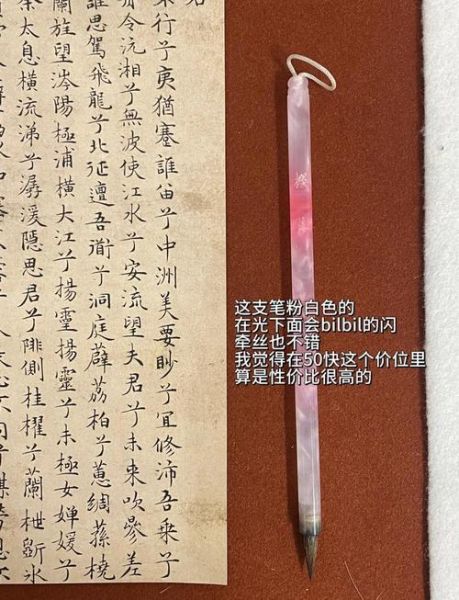 君
行兮夷猶蹇誰留兮中洲美要眇兮宜修沛吾乘兮
令沅湘兮無波使江水兮安流望夫君兮未來吹參差
誰思駕飛龍兮北征邅吾衜兮洞庭薜荔柏兮蕙綢蓀橈
蘭旌望涔陽極浦橫大江兮揚靈揚靈兮未極女嬋媛兮
太息橫流涕兮潺湲隱思君兮陫側桂櫂兮蘭枻斲冰
这支笔粉白色的
在光下面会bilbil的闪
牵丝也不错
我觉得在50快这个价位里
算是性价比很高的